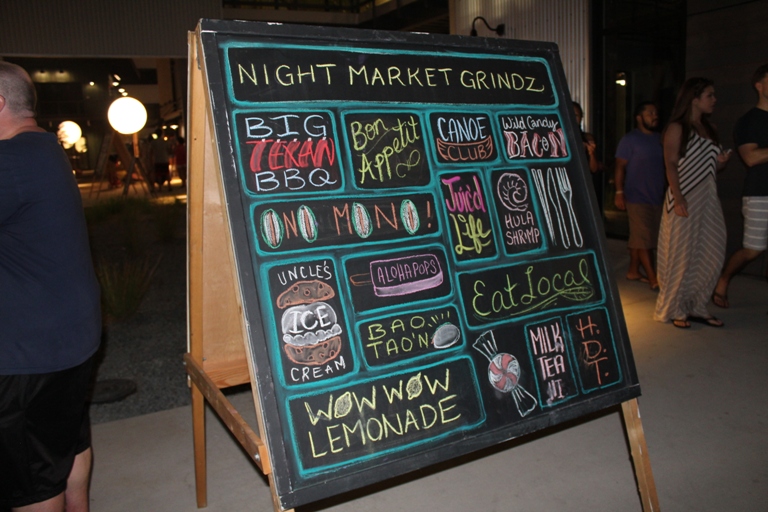 NIGHT MARKET GRINDZ
BIG
TEXAN
BBQ
Bon
Appetit
CANOE
CLUB
Wild Candy
BACON
ONO MONO!
Juic'd
Life
HULA
SHRIMP
UNCLE'S
ICE
CREAM
ALOHAPOPS
Eat Local
BAO
TAO'N
MILK
TEA
H.
D.
T.
WOW WOW
LEMONADE